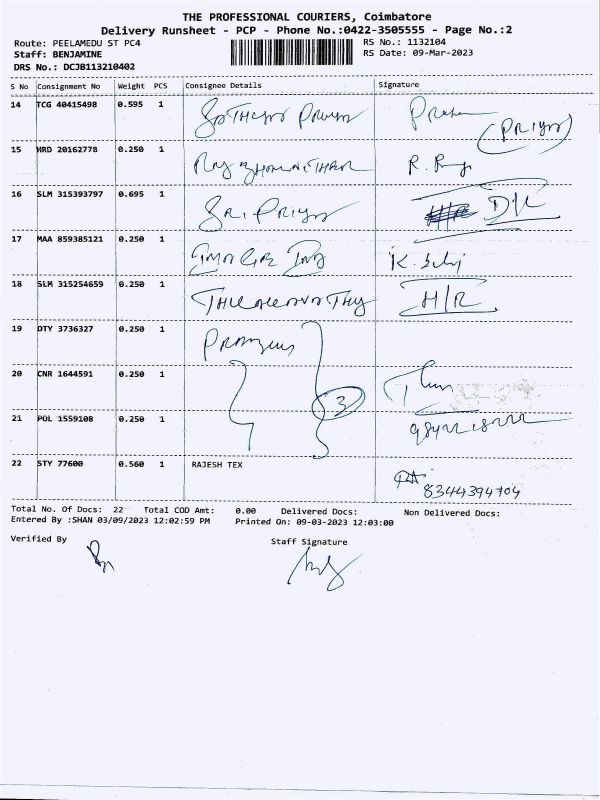 THE PROFESSIONAL COURIERS, Coimbatore
Delivery Runsheet - PCP - Phone No.:0422-3505555 - Page No.:2
Route: PEELAMEDU ST PC4
Staff: BENJAMINE
DRS No.: DCJB113210402
RS No.: 1132104
RS Date: 09-Mar-2023
S No Consignment No Weight PCS Consignee Details Signature
14 TCG 40415498 0.595 1
(PRIYA)
15 HRD 20162778 0.250 1
16 SLM 315393797 0.695 1 SRI PRIYA D/R
17 MAA 859385121 0.250 1
18 SLM 315254659 0.250 1 H/R
19 DTY 3736327 0.250 1
20 CNR 1644591 0.250 1 3
21 POL 1559108 0.250 1
22 STY 77600 0.560 1 RAJESH TEX
8344394704
Total No. Of Docs: 22 Total COD Amt: 0.00 Delivered Docs: Non Delivered Docs:
Entered By :SHAN 03/09/2023 12:02:59 PM Printed On: 09-03-2023 12:03:00
Verified By Staff Signature